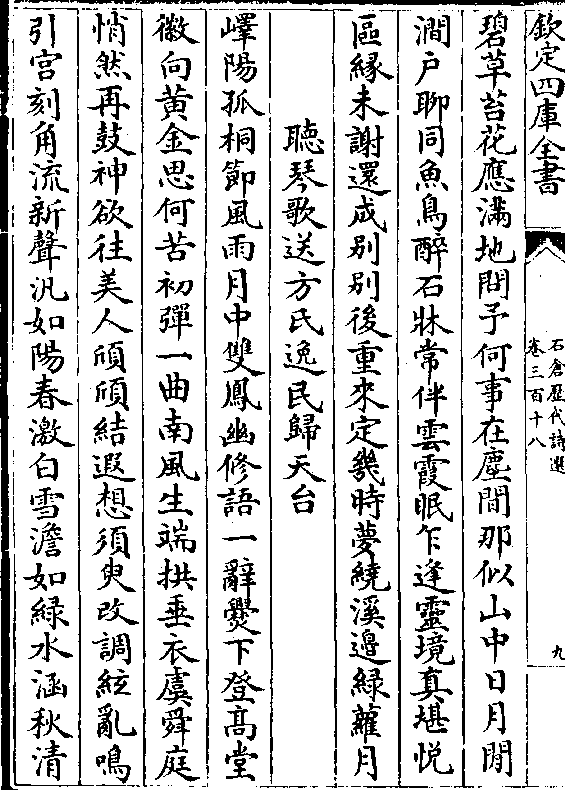 欽定四庫全書
石倉歷代詩選
卷三百十八
九
碧草苔花應滿地問予何事在塵間那似山中日月閒
澗戸聊同魚鳥醉石牀常伴雲霞眠乍逢靈境真堪悅
區緣未謝還成別別後重來定幾時夢繞溪邉緑蘿月
聽琴歌送方氏逸民歸天台
嶧陽孤桐節風雨月中雙鳳幽修語一辭㸑下登髙堂
徽向黄金思何苦初彈一曲南風生端拱垂衣虞舜庭
悄然再鼓神欲往美人頎頎結遐想須臾改調絃亂鳴
引宫刻角流新聲汎如陽春激白雪澹如緑水涵秋清